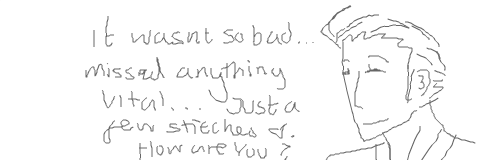 It wasnt so bad...
missed anything
vital... Just a
few stitches
How are You?